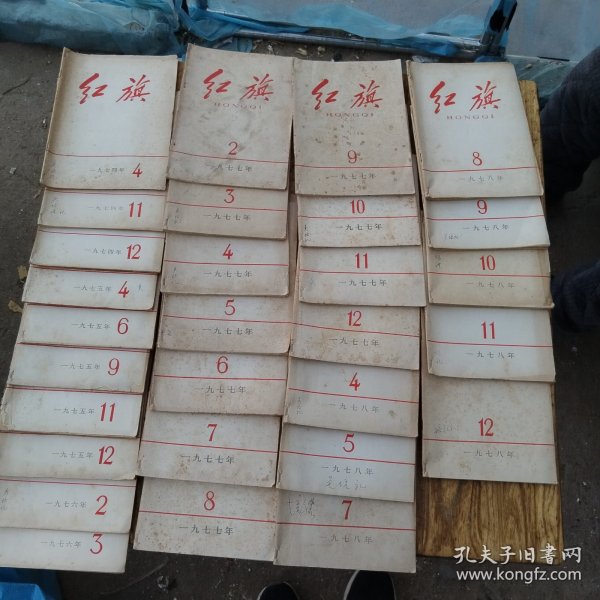 红旗
一九七四年 4
一九七四年 11
一九七四年 12
一九七五年 4
一九七五年 6
一九七五年 9
一九七五年 11
一九七五年 12
一九七六年 2
一九七六年 3
红旗
HONGQI
2
一九七七年
3
一九七七年
4
一九七七年
5
一九七七年
6
一九七七年
7
一九七七年
8
一九七七年
红旗
HONGQI
9
一九七七年
10
一九七七年
11
一九七七年
12
一九七七年
4
一九七八年
5
一九七八年
7
一九七八年
红旗
HONGQI
8
一九七八年
9
一九七八年
10
一九七八年
11
一九七八年
12
一九七八年
孔夫子旧书网
www.kongfz.com